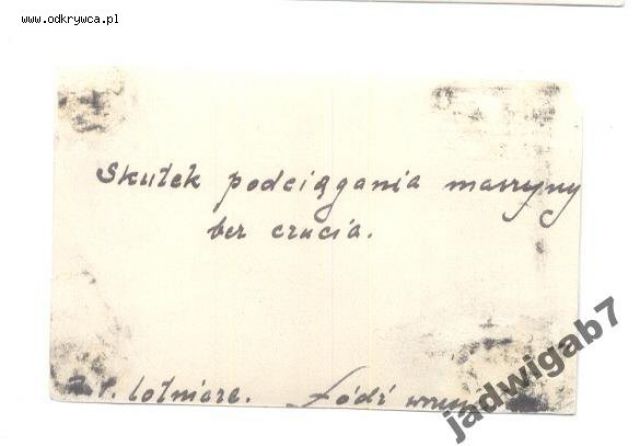 www.odkrywca.pl
Skutek podciągania maszyny
bez czucia.
lotnicze. Łódź
jadwigab7